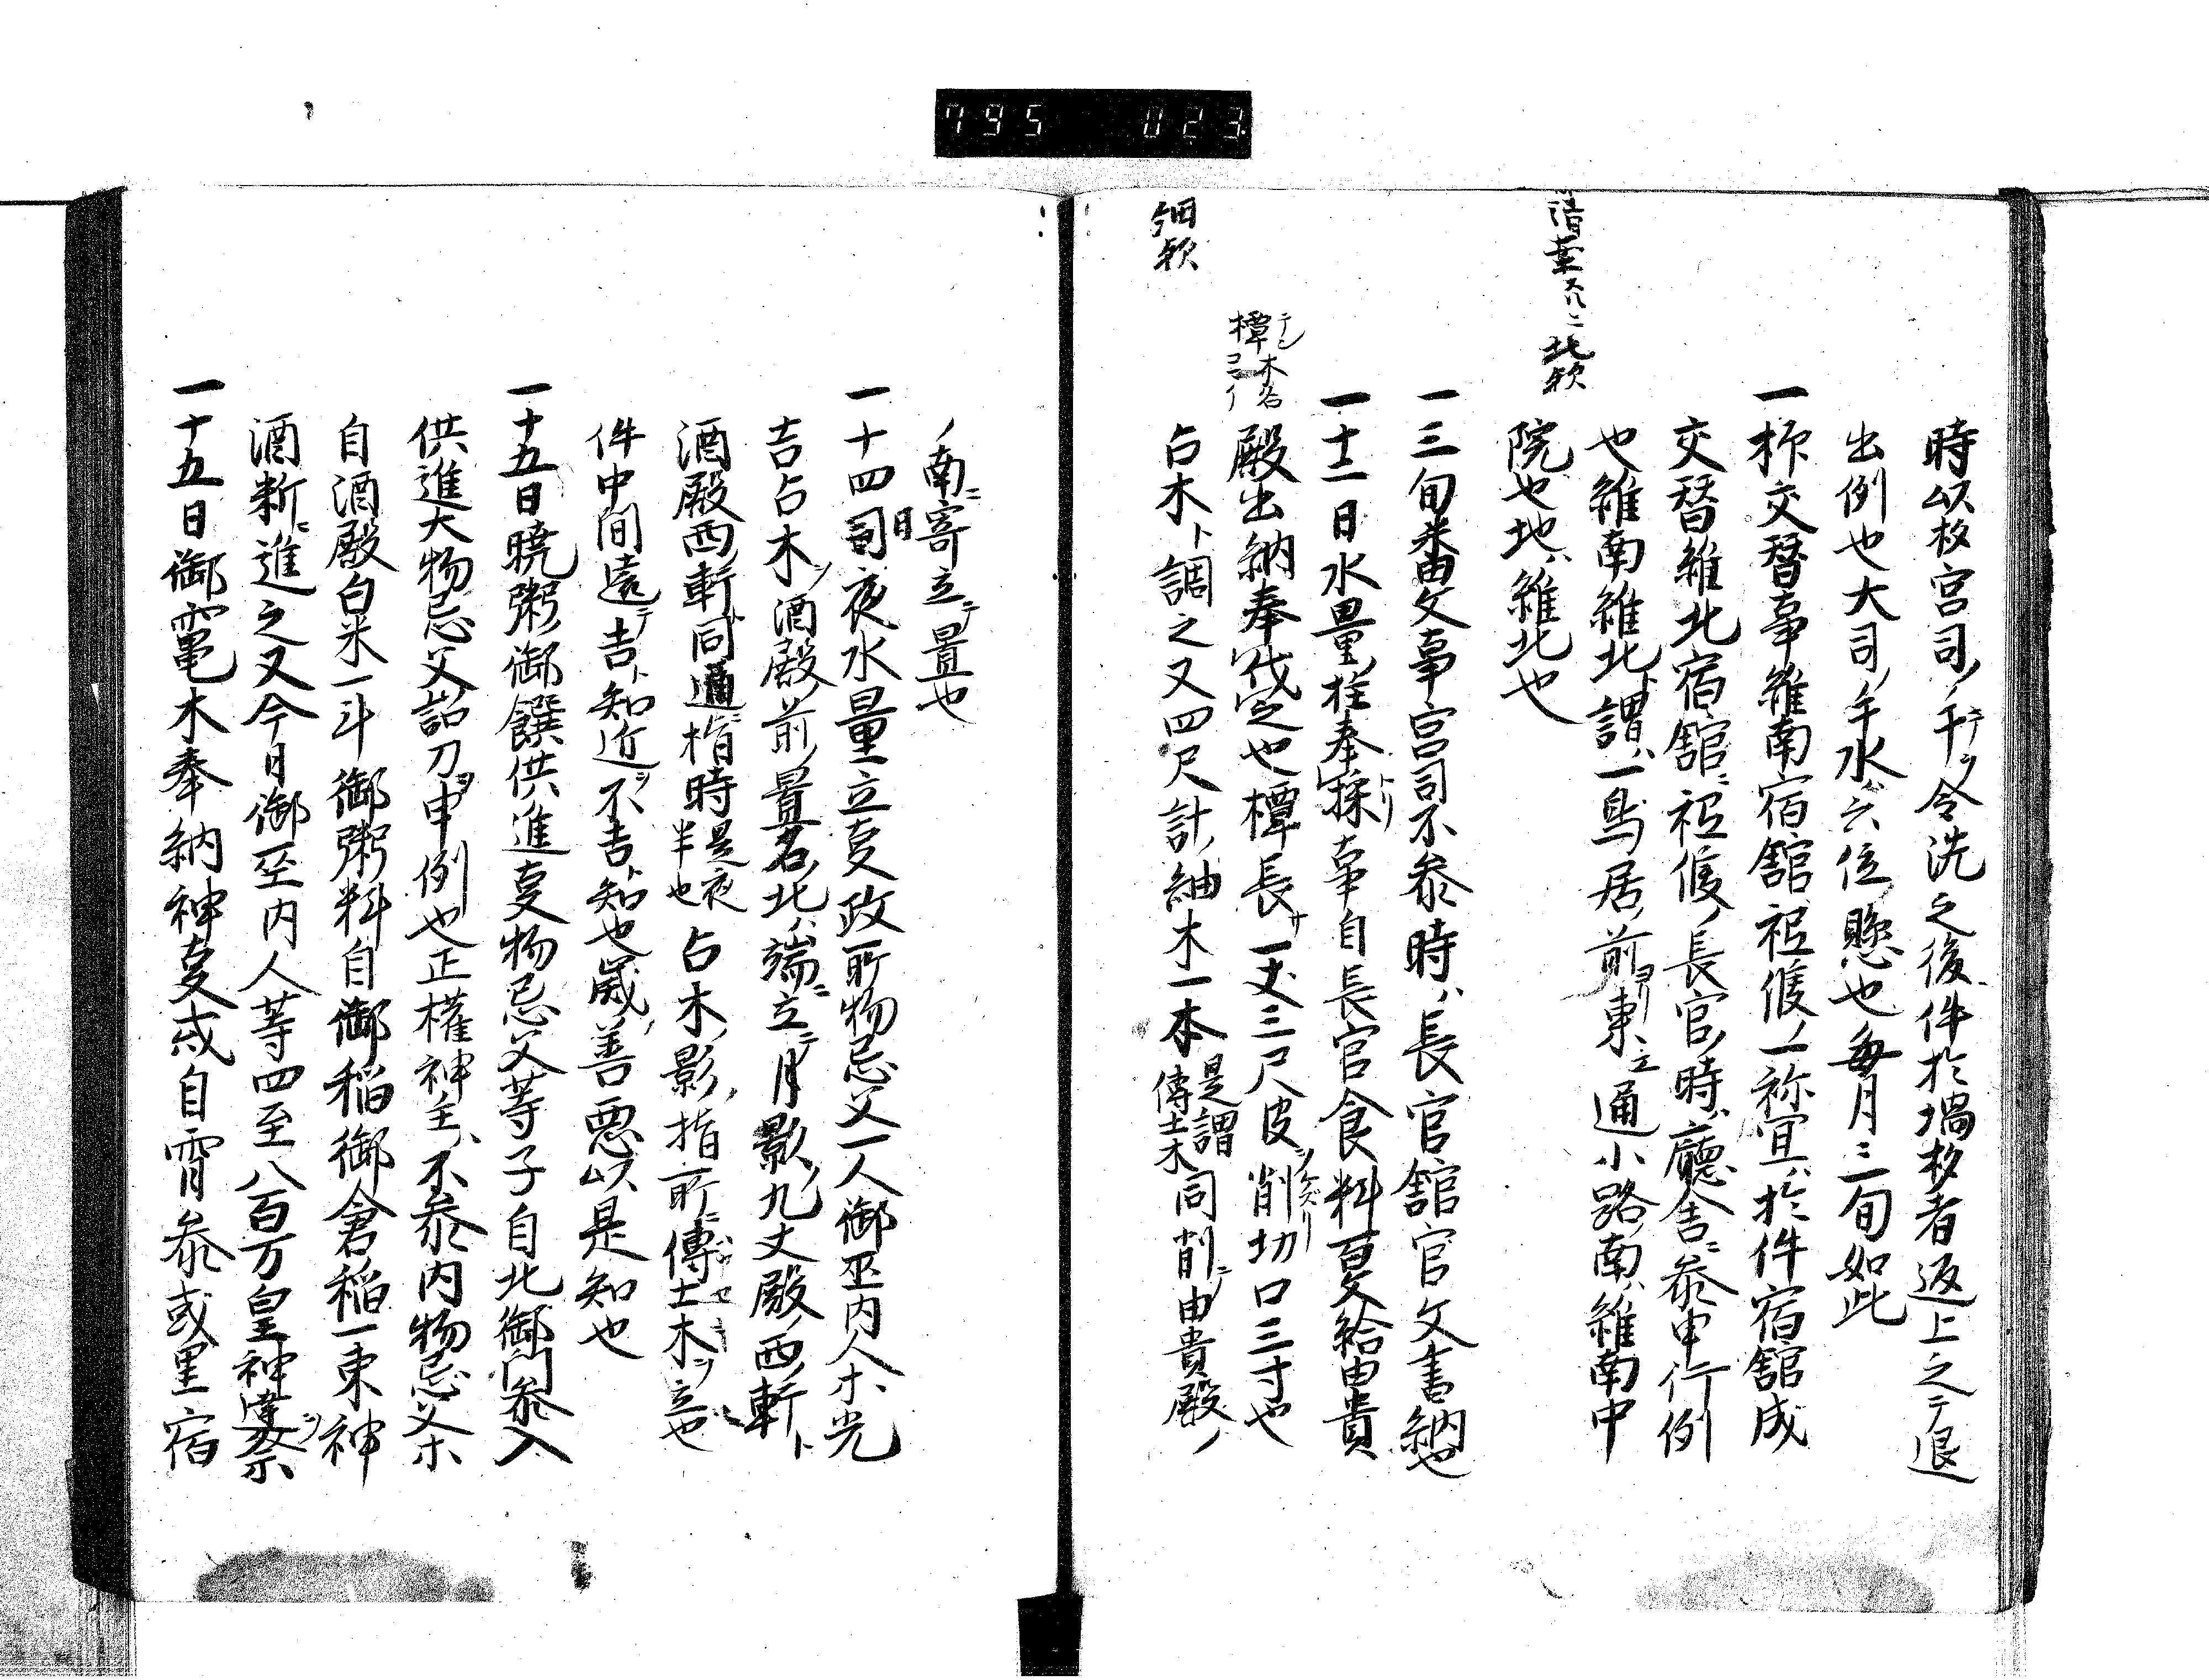 795 023
時以杉宮司ノ手ヲ令洗之後件於堝杉者返上之テ退
出例也大司ノ手水ハ六位ノ懸也毎月三旬如此
一 祢交替事雖南宿舘祗候ノ一祢宜ハ於件宿舘成
交替雖北宿舘ニ祗候ノ長官ノ時ハ廳舎ニ参申行例
也雖南雖北ト謂ハ一鳥居ノ前ヨリ東ニ立通小路南ハ雖南中
院也地ハ雖北也
北歟
一 三旬米由文事宮司不参時ハ長官舘官文書納也
一 十二日水量ノ柱奉採事自長官食料百文給由貴
殿出納奉伐定也橝長サ一丈三尺皮ヲ削切口三寸也
橝 木名
占木ト調之又四尺計ノ紬木一本 是謂傳土木 同削テ由貴殿ノ
細歟
ノ南ニ寄立テ置也
一 十四日夜水量立事政所物忌父一人御巫内人木光
吉占木ヲ酒殿ノ前ノ置名北ノ端ニ立テ月影ノ九丈殿ノ西ノ軒ト
酒殿西ノ軒ト同通ニ楷時 是夜半也 占木ノ影ノ指所ニ傳土木ヲ立也
件中間遠テ吉ト知近ヲ不吉ト知也歳ノ善悪以是知也
一 十五日暁粥御饌供進事物忌父等子自北御門参入
供進大物忌父詔刀ヲ申例也正權神主ハ不参内物忌父木
自酒殿白米一斗御粥料自御稲御倉稲一束神
酒新ニ進之又今日御巫内人等四至八百万皇神達ヲ祭
一 十五日御竃木奉納神事或自宵参或里宿